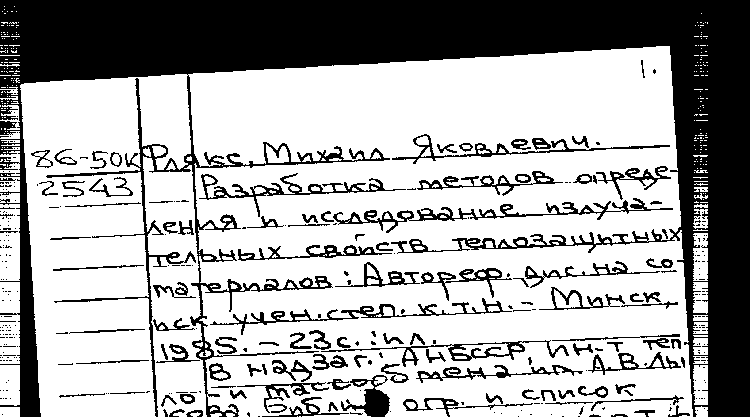 1.
86-50к Флякс, Михаил Яковлевич.
2543 Разработка методов опреде-
ления и исследование излуча-
тельных свойств теплозащитных
материалов : Автореф. дис. на со-
иск. учен. степ. к.т.н. - Минск,
1985. - 23 с. : ил.
В надзаг.: АН БССР, Ин-т теп-
ло- и массообмена им. А.В. Лы
кова. Библи огр. и список